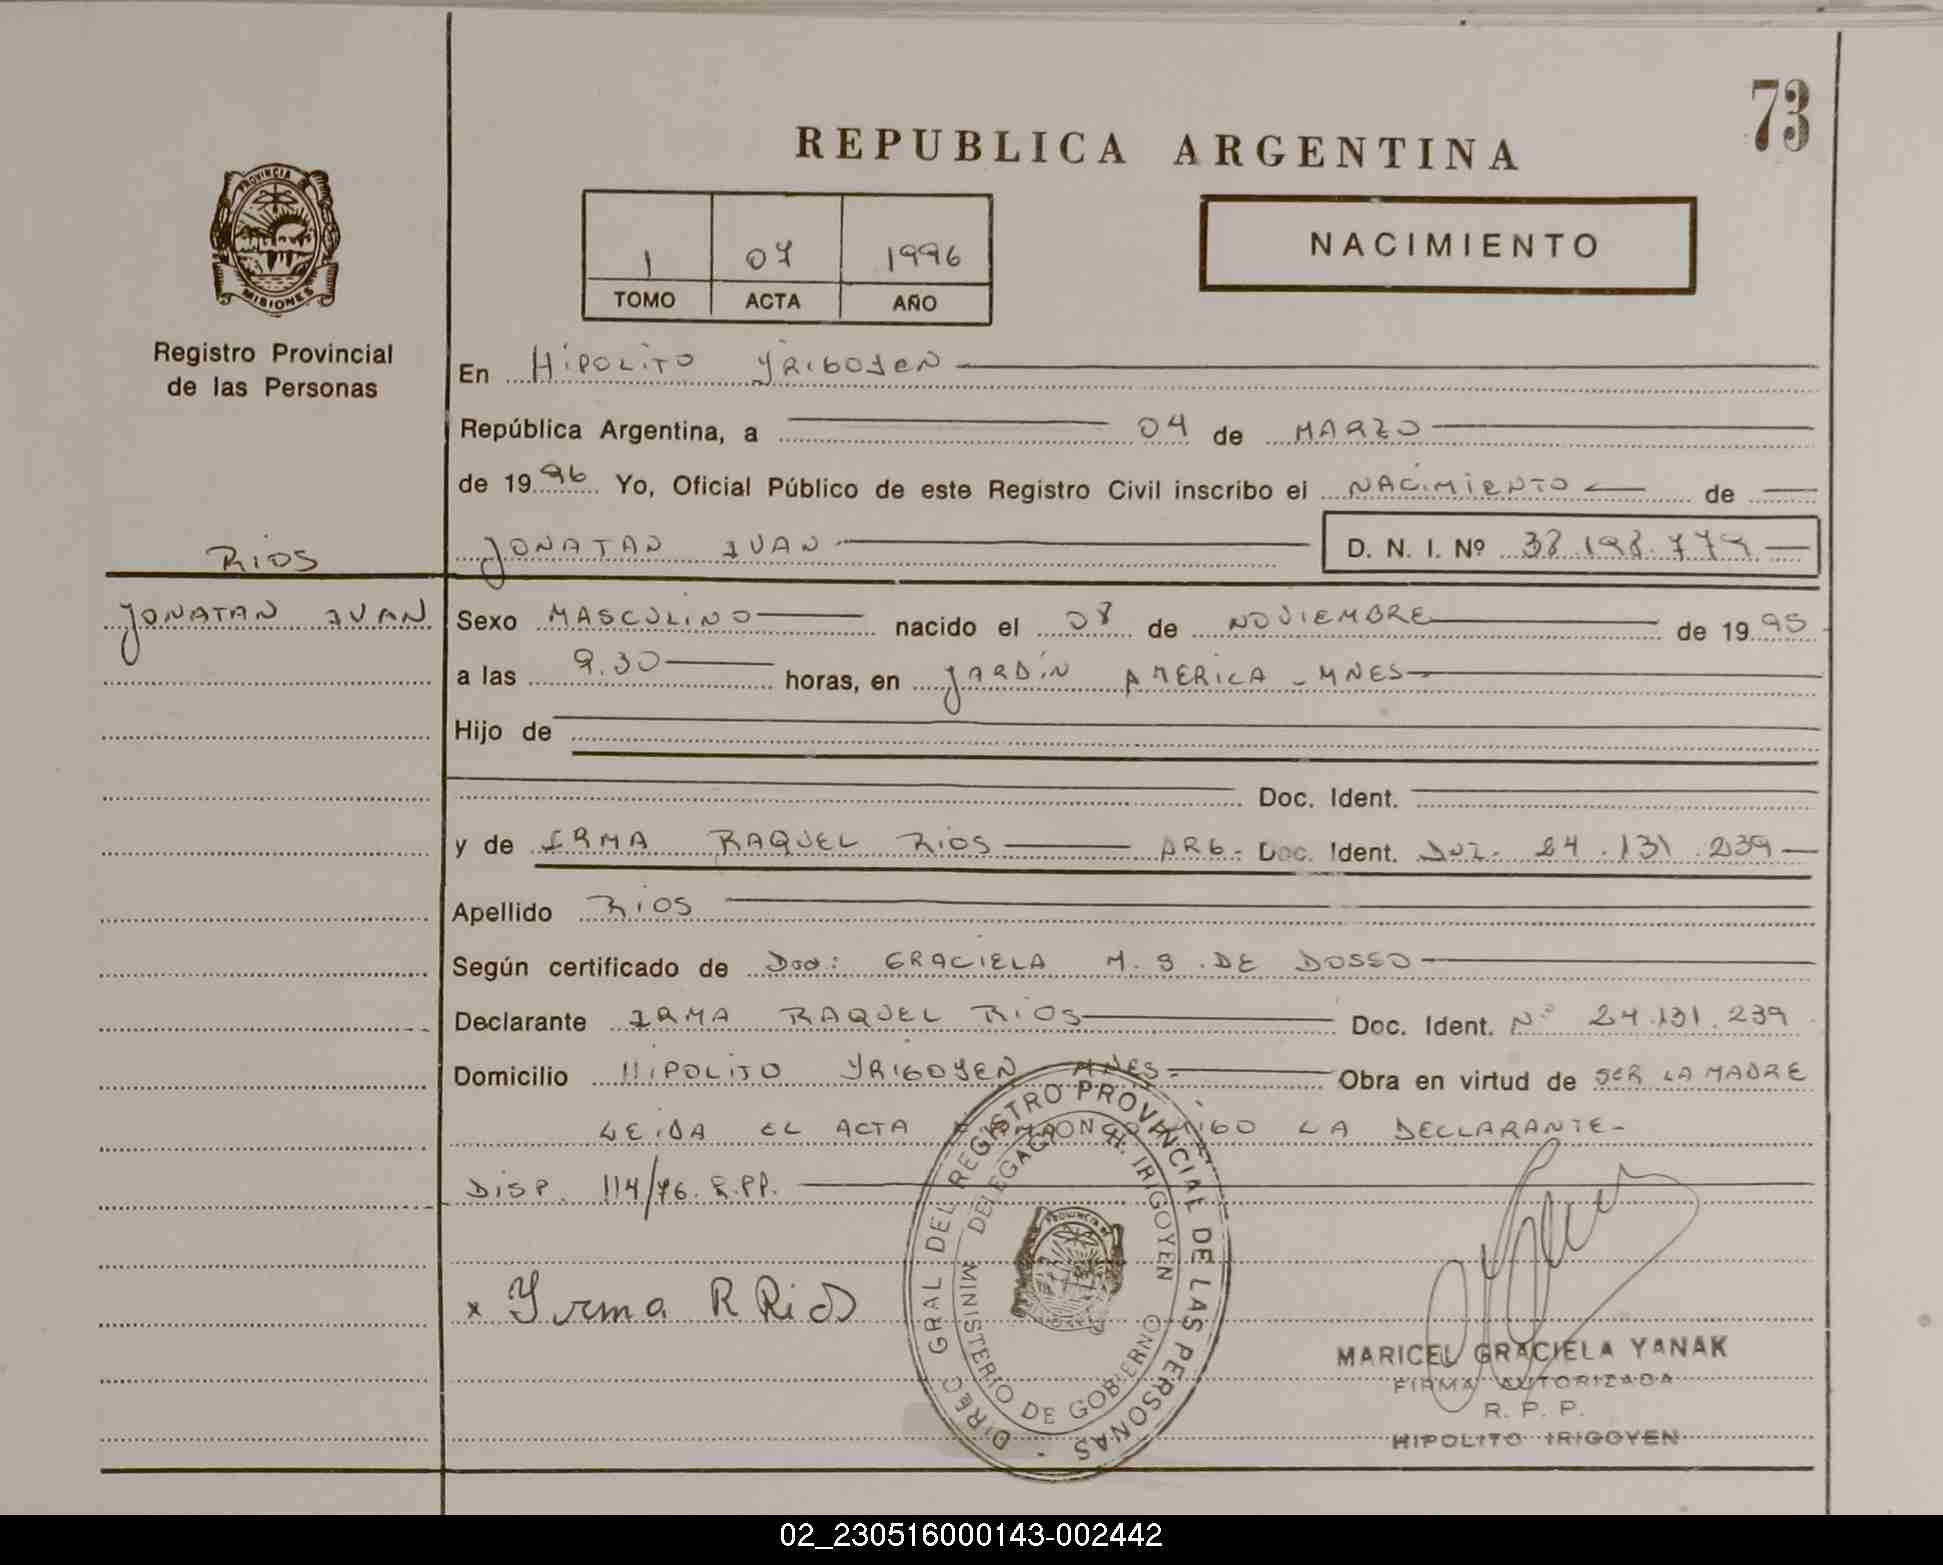 73
REPUBLICA ARGENTINA
PROVINCIA
MISIONES
Registro Provincial
de las Personas
1 07 1996
TOMO ACTA AÑO
NACIMIENTO
En HIPOLITO YRIGOYEN
República Argentina, a 04 de MARZO
de 1996 Yo, Oficial Público de este Registro Civil inscribo el NACIMIENTO de
RIOS
JONATAN IVAN D. N. I. Nº 38.198.779
JONATAN IVAN
Sexo MASCULINO nacido el 08 de NOVIEMBRE de 1995
a las 9.30 horas, en JARDIN AMERICA - MNES
Hijo de
Doc. Ident.
y de IRMA RAQUEL RIOS ARG- Doc. Ident. DNI- 24.131.239
Apellido RIOS
Según certificado de GRACIELA M. S. DE DOSSO
Declarante IRMA RAQUEL RIOS Doc. Ident. Nº 24.131.239
Domicilio HIPOLITO YRIGOYEN MNES- Obra en virtud de SER LA MADRE
LEIDA EL ACTA LA DECLARANTE-
DISP. 114/76. R.PP.
x Irma R Rios
DIREC. GRAL DEL REGISTRO PROVINCIAL DE LAS PERSONAS -
DELEGACION H. IRIGOYEN
MINISTERIO DE GOBIERNO
MARICEL GRACIELA YANAK
FIRMA AUTORIZADA
R. P. P.
HIPOLITO IRIGOYEN
02_230516000143-002442